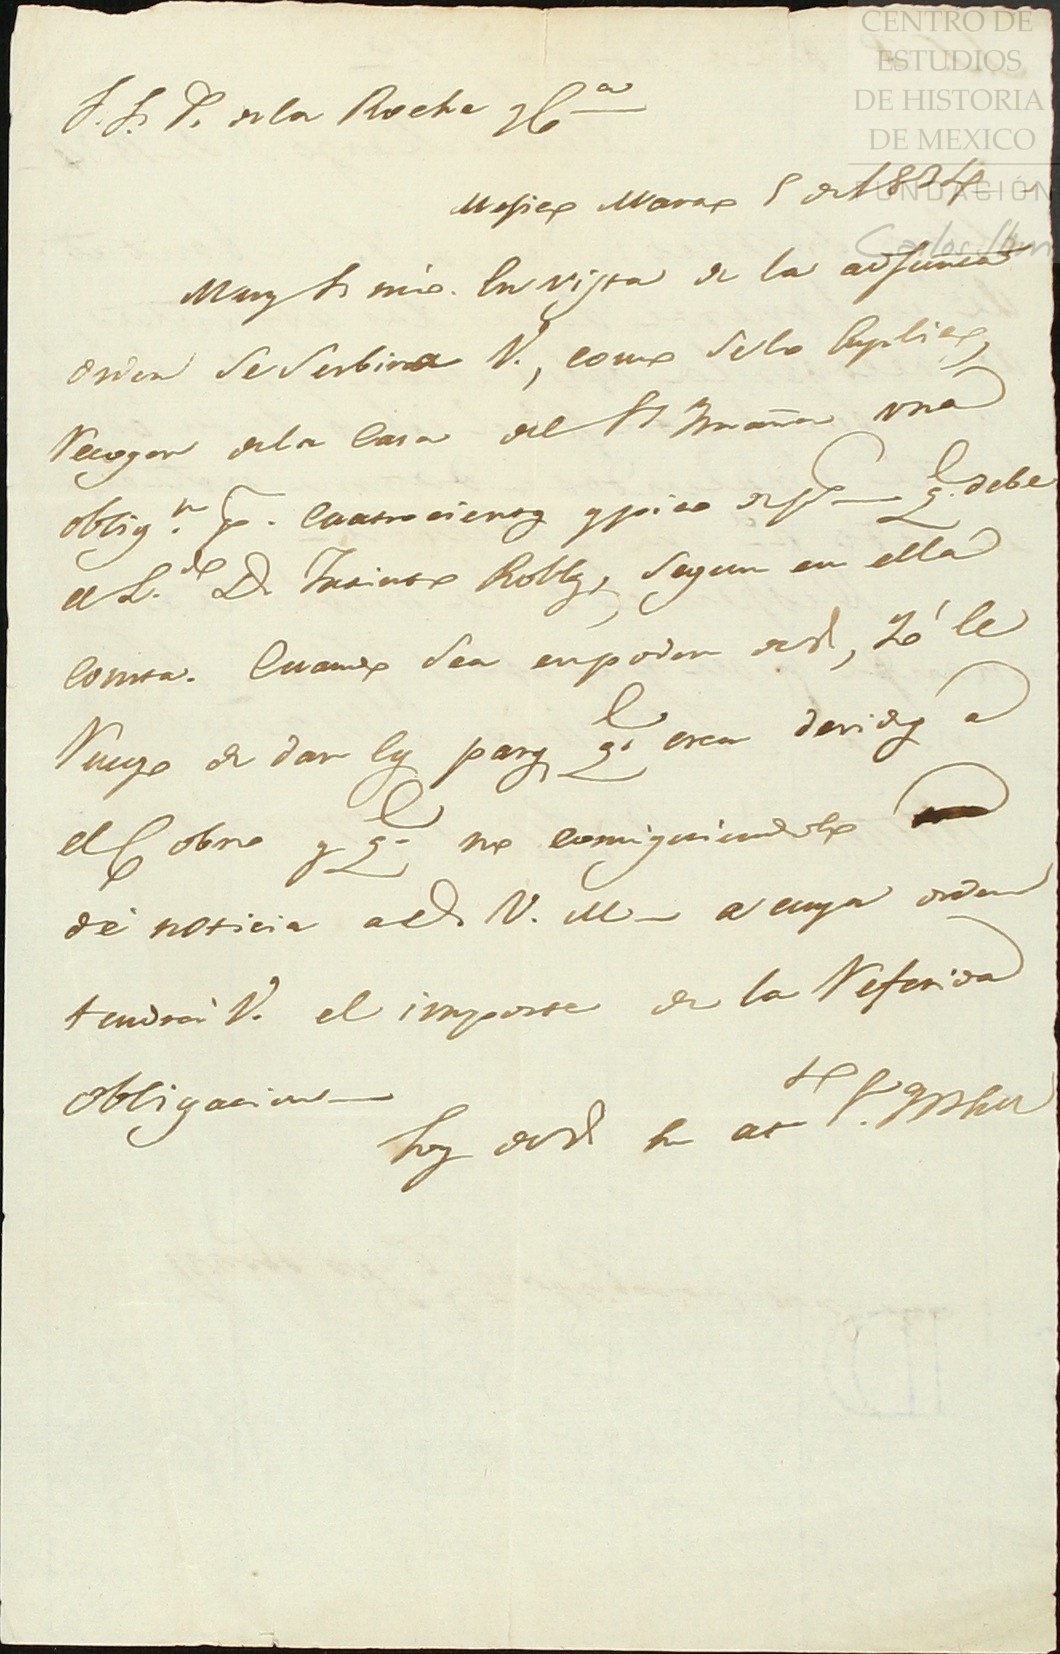 CENTRO DE
ESTUDIOS
DE HISTORIA
DE MEXICO
FUNDACIÓN
Carlos Slim
S. S. D. de la Roche y Ca
Mexico Marzo 5 de 1824
Muy Sr mio. En vista de la adjunta
orden se serbira V., como se lo suplico,
Recoger de la Casa del Sr una
oblign. pr. cuatrocientos y pico de ps qe. debe
el L.do Dn Robles, segun en ella
consta. Cuando sea en poder de V, Yó le
Ruego de dar los pasos qe. crea devidos a
el Cobro y qe. no consiguiendolo
dé noticia a el Sr V. M a cuya orden
tendrá V. el importe de la Referida
obligacion
Soy de V. su ato S.